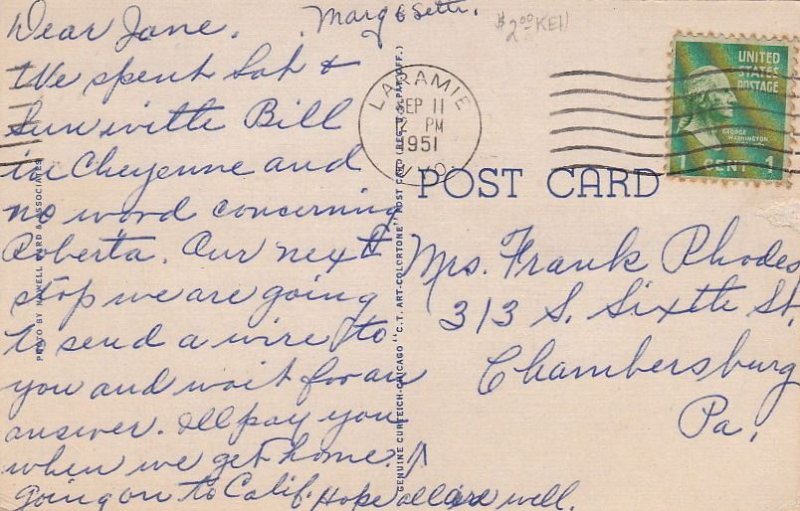 Dear Jane,
We spent Sat &
Sun with Bill
in Cheyenne and
no word concerning
Roberta. Our next
stop we are going
to send a wire to
you and wait for an
answer. Ill pay you
when we get home.
Going on to Calif. Hope all are well.
Marg &
$2.00 KEII
PHOTO BY HOWELL WARD & ASSOCIATES
GENUINE CURTEICH-CHICAGO "C.T. ART-COLORTONE" POST CARD (REG. U.S. PAT. OFF.)
LARAMIE
SEP 11
2 PM
1951
WYO
UNITED
STATES
POSTAGE
GEORGE
WASHINGTON
1 CENT 1
POST CARD
Mrs. Frank Rhodes
313 S. Sixth St.
Chambersburg
Pa.